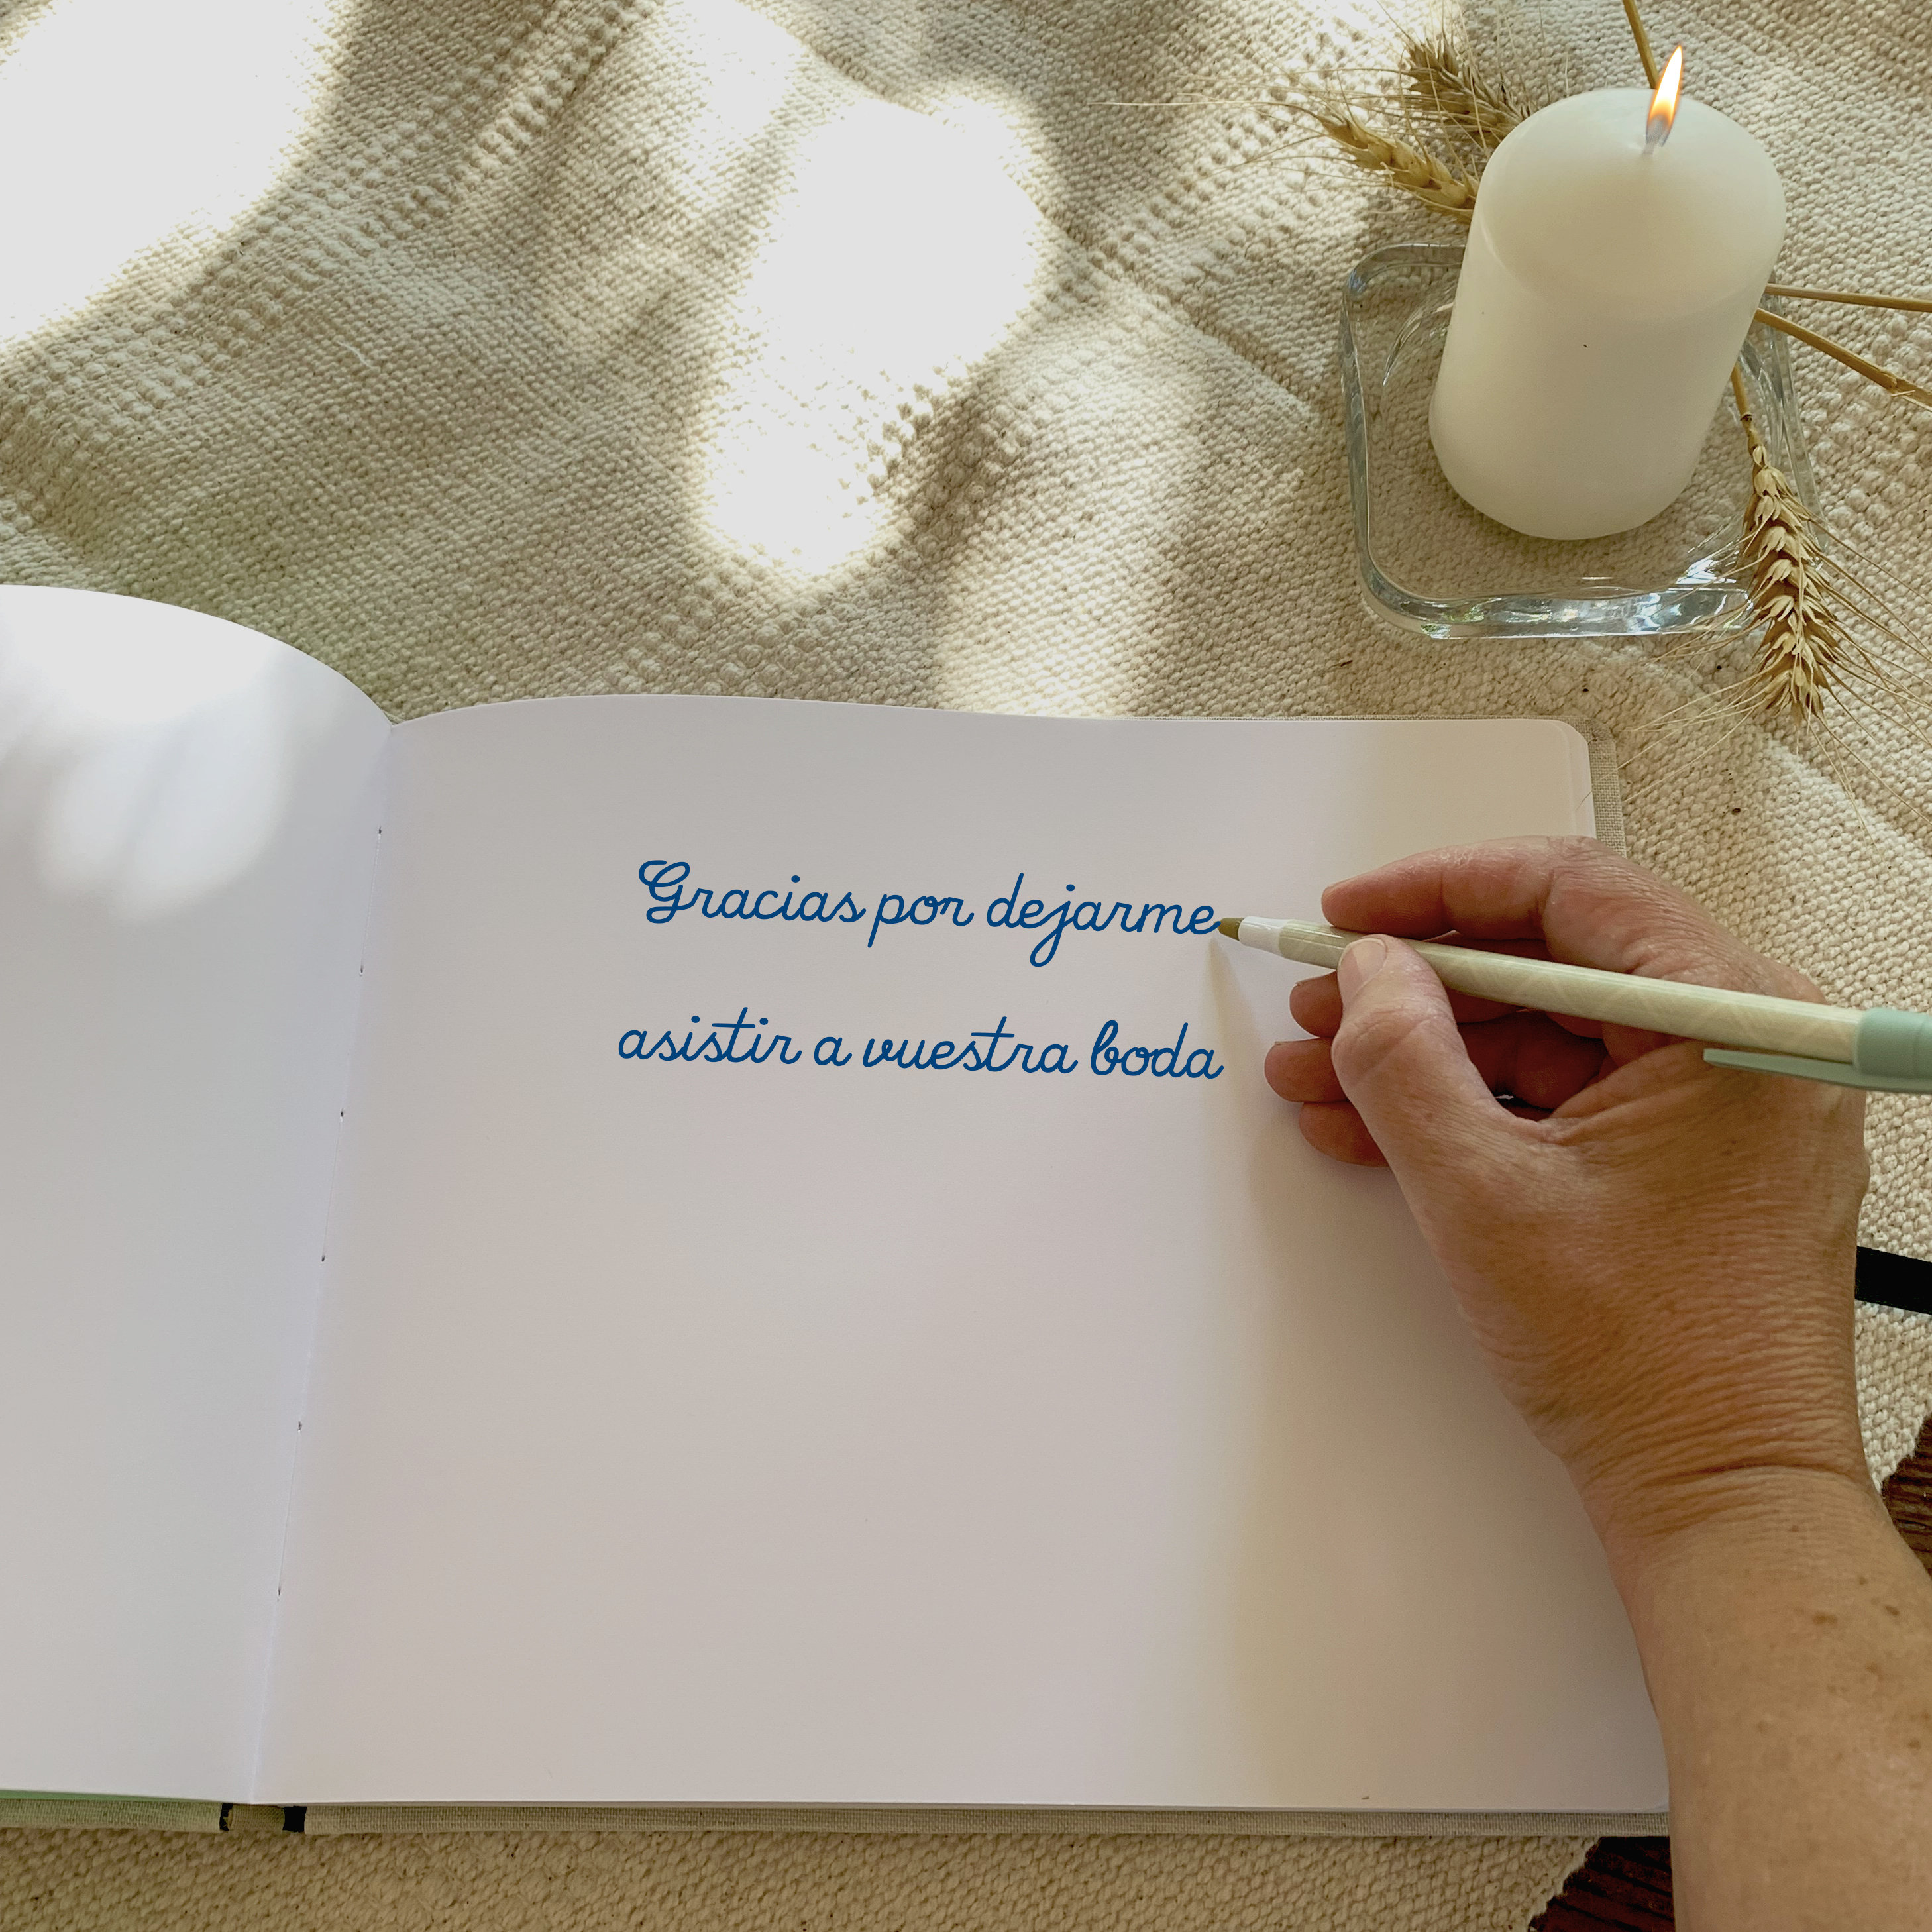 Gracias por dejarme
asistir a vuestra boda